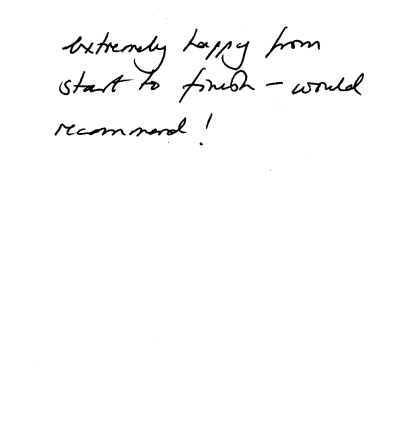 extremely happy from
start to finish - would
recommend!